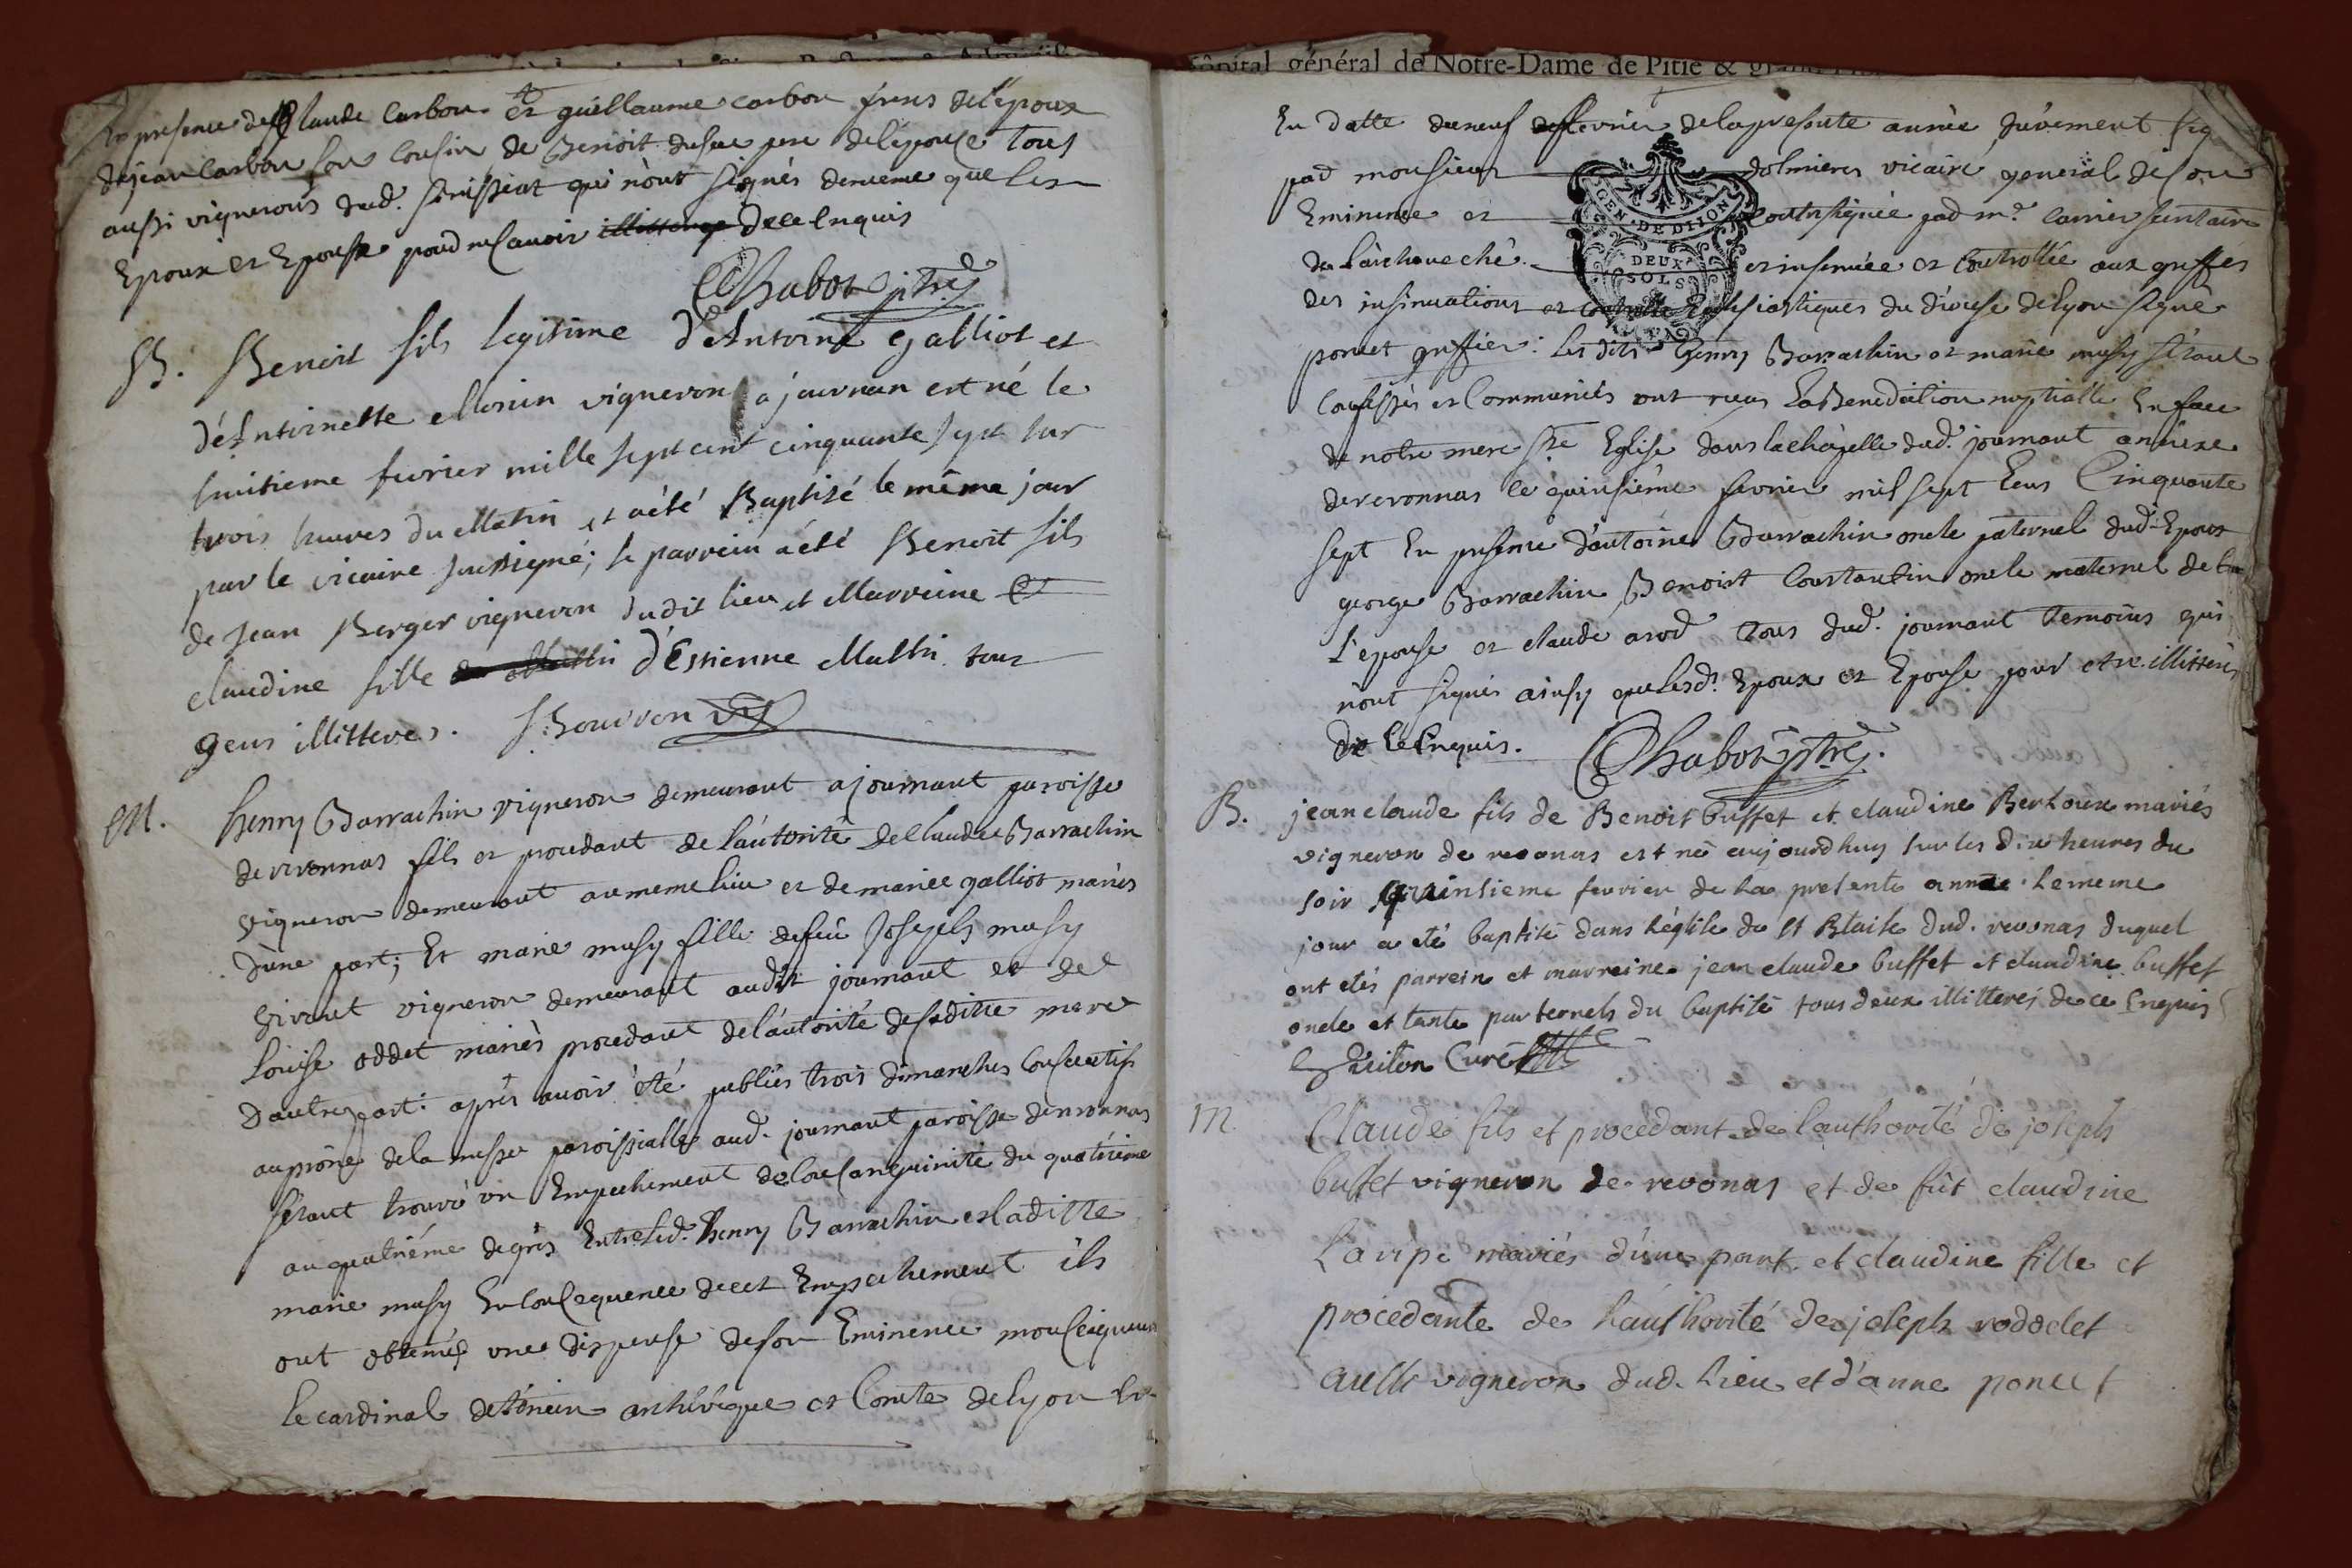 En presence de Claude Carbon et guillaume carbon freres de l'epoux
de jean Carbon son Cousin de Benoit dufue pere de l'epouse tous
aussi vignerons dud. simissiat qui n'ont signés de meme que les
Epoux et Epouse pour ne scavoir de ce Enquis
Chabot ptre
B. Benoit fils legitime d'Antoine galliot et
d'Antoinette Morin vigneron a journan est né le
huitieme fevrier mille sept cent cinquante sept sur
trois heures du Matin et a été Baptisé le même jour
par le vicaire soussigné; le parrein a été Benoit fils
de Jean Berger vigneron dudit lieu et Marreine
claudine fille d'Estienne Mathi tous
gens illitteres. Bouvron
M. henry Barrachin vigneron demeurant a journant paroisse
de revonnas fils et procedant de l'autorité de Claude Barrachin
vigneron demeurant au meme lieu et de mariee galliot mariés
d'une part; Et marie musy fille defeu Joseph musy
vivant vigneron demeurant audit journant et de
Louise oddet mariés procedant de l'autorité de saditte mere
d'autre part. après avoir été publiés trois dimanches Consecutifs
au prône de la messe paroissialle aud. journant paroisse de revonnas
s'étant trouvé un Empechement de Consanguinité du quatrieme
au quatriéme degrés Entre led. henry Barrachin et laditte
marie musy En Consequence de cet Empechement ils
ont obtenus une dispense de son Eminence monseigneur
le cardinal de tencin archevêque et Comte de lyon En
hôpital général de Notre-Dame de Pitié & grand
En datte du neuf de fevrier de la presente année duëment sig
par monsieur dolmieres vicaire general de son
Eminence et Contresignée par mr. Carrier secretaire
de l'archeveché et insinuée et Controllée aux greffes
des insinuations et controlle Eclesiastiques du diocese de lyon signé
poncet greffier: lesdits henry Barrachin et marie musy s'étant
Confessés et Communiés ont reçus la Benediction nuptialle En face
de notre mere ste Eglise dans la chapelle dud. journant annexe
de revonnas le quinsiéme fevrier mil sept Cens Cinquante
sept En presence d'antoine Barrachin oncle paternel dud. Epoux
george Barrachin Benoist Constantin oncle maternel de la
L'epouse et claude arod tous dud. journant temoins qui
n'ont signés ainsy que lesd. Epoux et Epouse pour etre illitterés
de Ce Enquis. Chabot ptre.
GEN. DE DIJON
DEUX
SOLS
B. jean claude fils de Benoit buffet et claudine Berthoux mariés
vigneron de revonas est né aujourdhuy sur les dix heures du
soir quinsieme fevrier de la presente année. Le meme
jour a été baptisé dans l'église de st Blaise dud. revonas duquel
ont etés parrein et marreine jean claude buffet et claudine buffet
oncle et tante paternels du baptisé tous deux illitterés de ce Enquis
Curé
M. Claude fils et procedant de l'authorité de joseph
buffet vigneron de revonas et de fût claudine
Laripe mariés d'une part. et claudine fille et
procedante de l'authorité de joseph rododet
vigneron dud. lieu et d'anne poncet